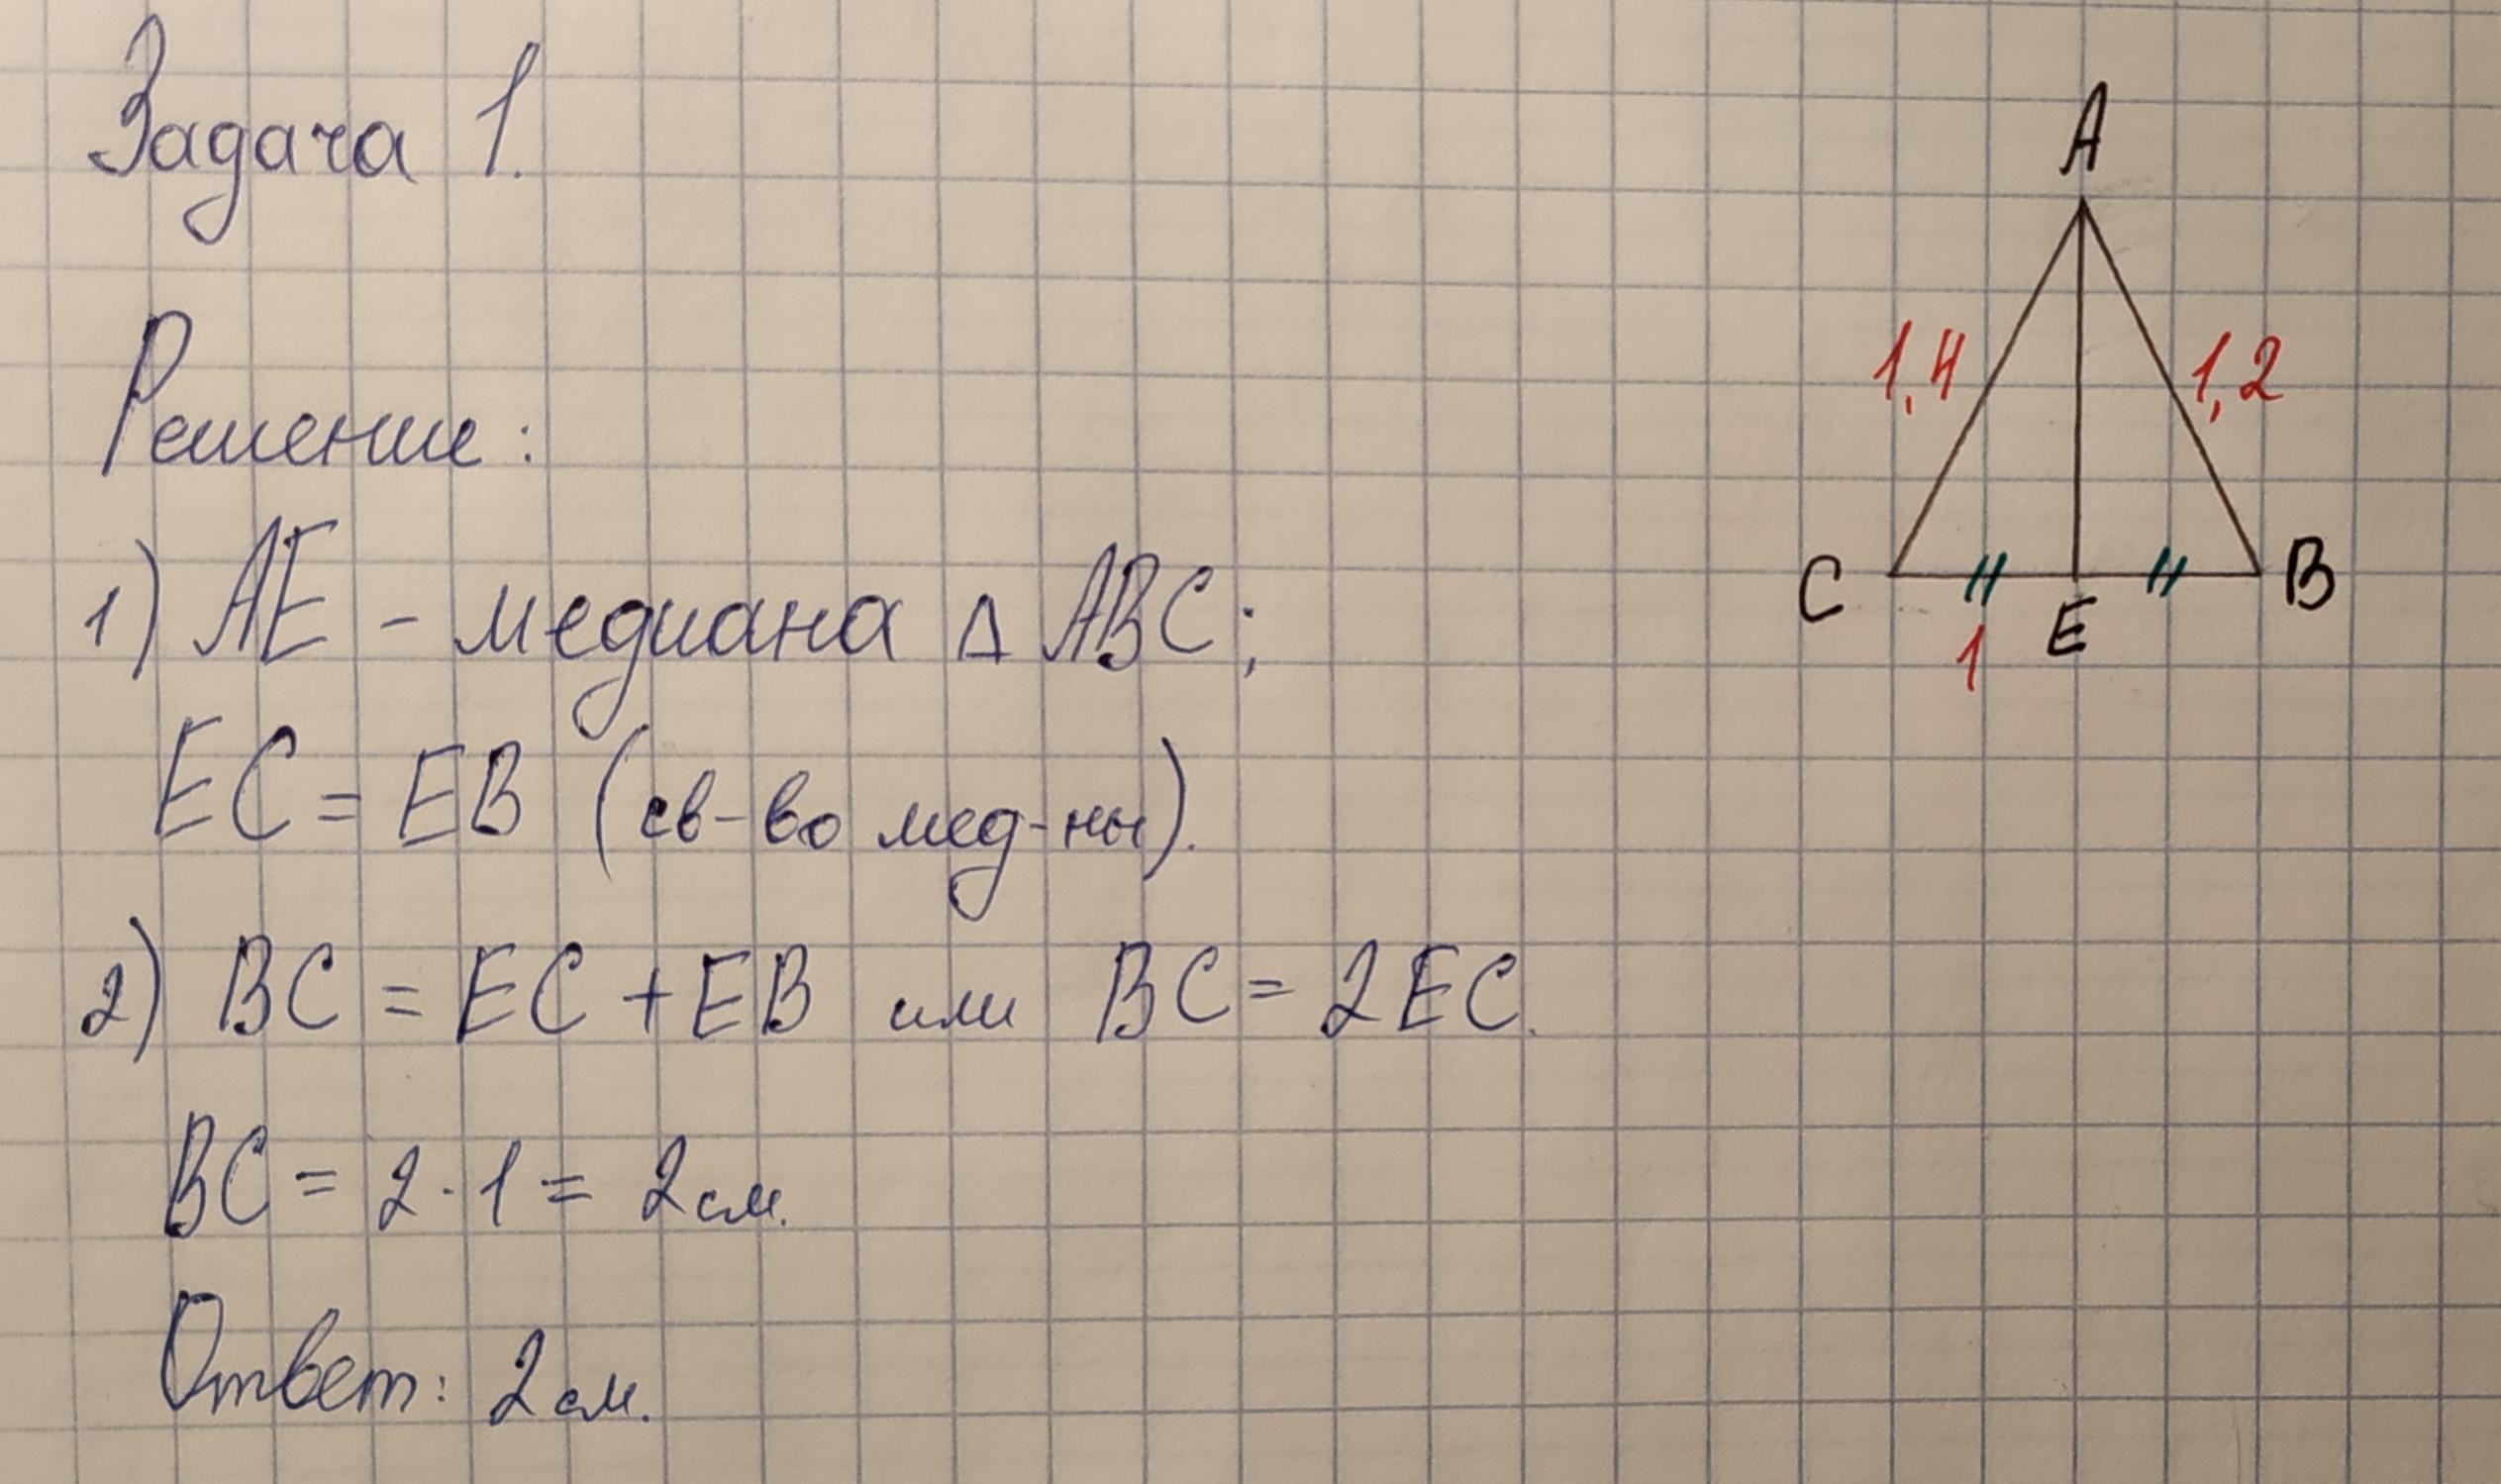 Задача 1.
Решение:
1) AE - медиана Δ ABC;
EC = EB (св-во мед-ны).
2) BC = EC + EB или BC = 2EC.
BC = 2 · 1 = 2 см.
Ответ: 2 см.
A
1,4
1,2
C
E
B
1